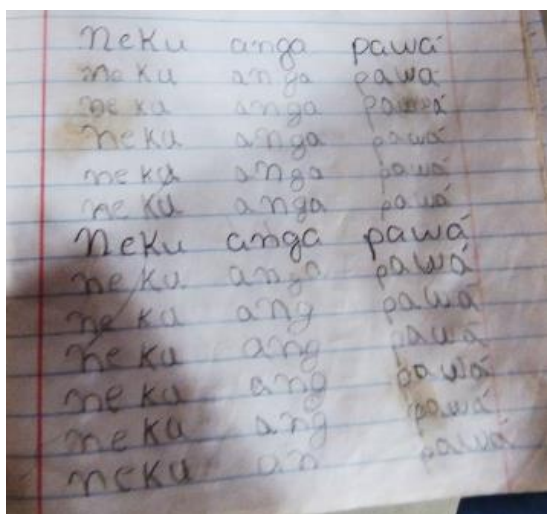 neku anga pawá
neku anga pawa
neku anga pawá
neku anga pawá
neku anga pawá
neku anga pawá
neku anga pawá
neku anga pawá
neku ang pawá
neku ang pawá
neku ang pawá
neku ang pawá
neku an pawá